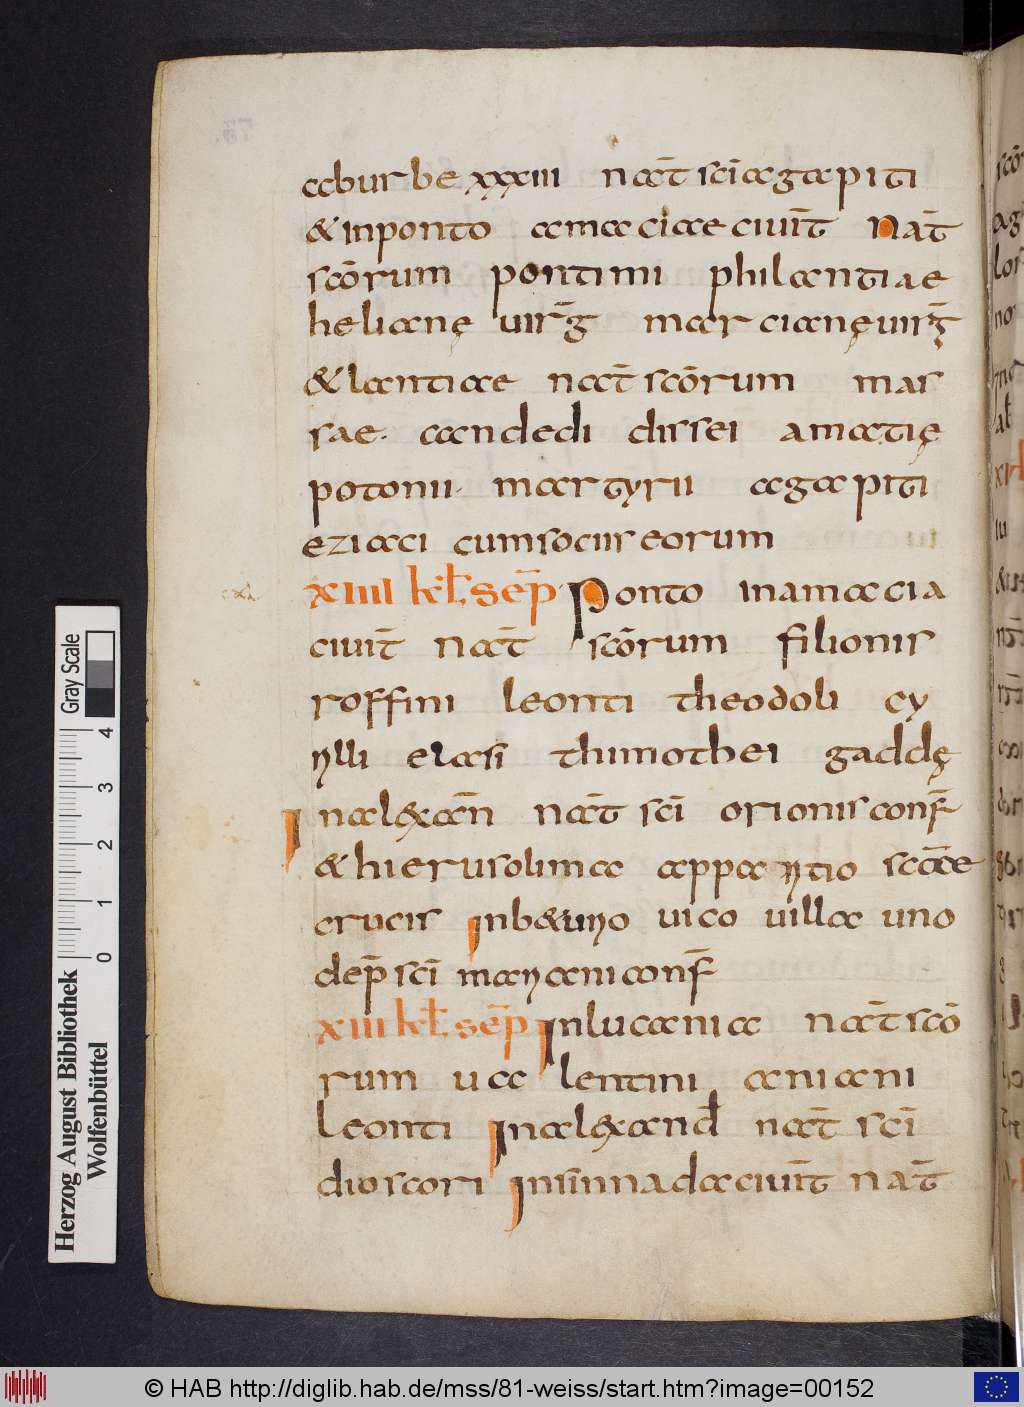 aburbe xxxiii nat̄ sc̄i agapiti
& inponto amaciae civit̄ Nat̄
scōrum pontimi philantiae
helianę virḡ marcianę virḡ
& lantiae nat̄ scōrum mas
sae. candedi dissei amatię
potonii. martyrii agapiti
eziaci cumsociis eorum
xiiii kł. sep̄ Ponto inamacia
civit̄ nat̄ scōrum filionis
roffini leonti theodoli cy
rylli elasii thimothei gaddę
Inalexan̄ nat̄ sc̄i orionis conf̄
& hierusolima apparitio scāe
crucis Inb&urrio vico villa uno
dep̄ sc̄i mariani conf̄
xiii kł. sep̄ Inlucania nat̄ scō
rum va lentini aniani
leonti Inalexand̄ nat̄ sc̄i
dioscori Insinnada civit̄ nat̄
Gray Scale
4
3
2
1
0
Herzog August Bibliothek
Wolfenbüttel
© HAB http://diglib.hab.de/mss/81-weiss/start.htm?image=00152